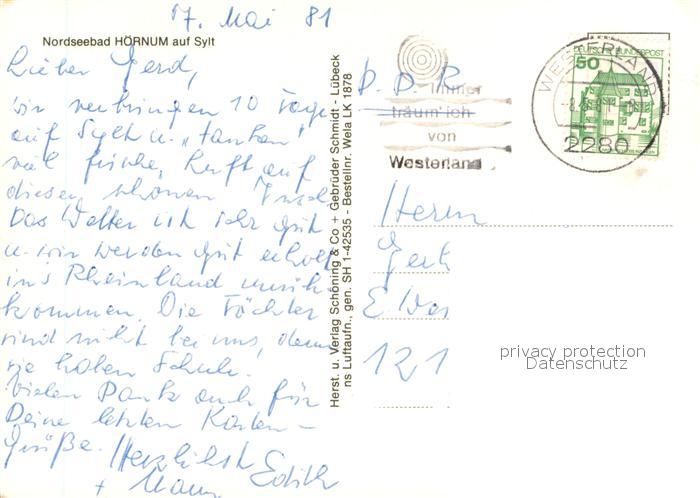 7. Mai 81
Nordseebad HÖRNUM auf Sylt
Lieber Gerd,
wir verbringen 10 Tage
auf Sylt u. "tanken"
viel frische Luft auf
dieser schönen Insel
Das Wetter ist sehr gut
u. wir werden gut erholt
ins Rheinland zurück-
kommen. Die Töchter
sind nicht bei uns, denn
sie haben Schule.
Vielen Dank auch für
Deine letzten Karten-
grüße. Herzlichst Edith
+ Mann
Herst. u. Verlag Schöning & Co + Gebrüder Schmidt - Lübeck
ns Luftaufn. gen. SH 1-42535 - Bestellnr. Wela LK 1878
D. D. R.
immer
träum' ich
von
Westerland
WESTERLAND
2280
DEUTSCHE BUNDESPOST
50
Herrn
121
privacy protection
Datenschutz